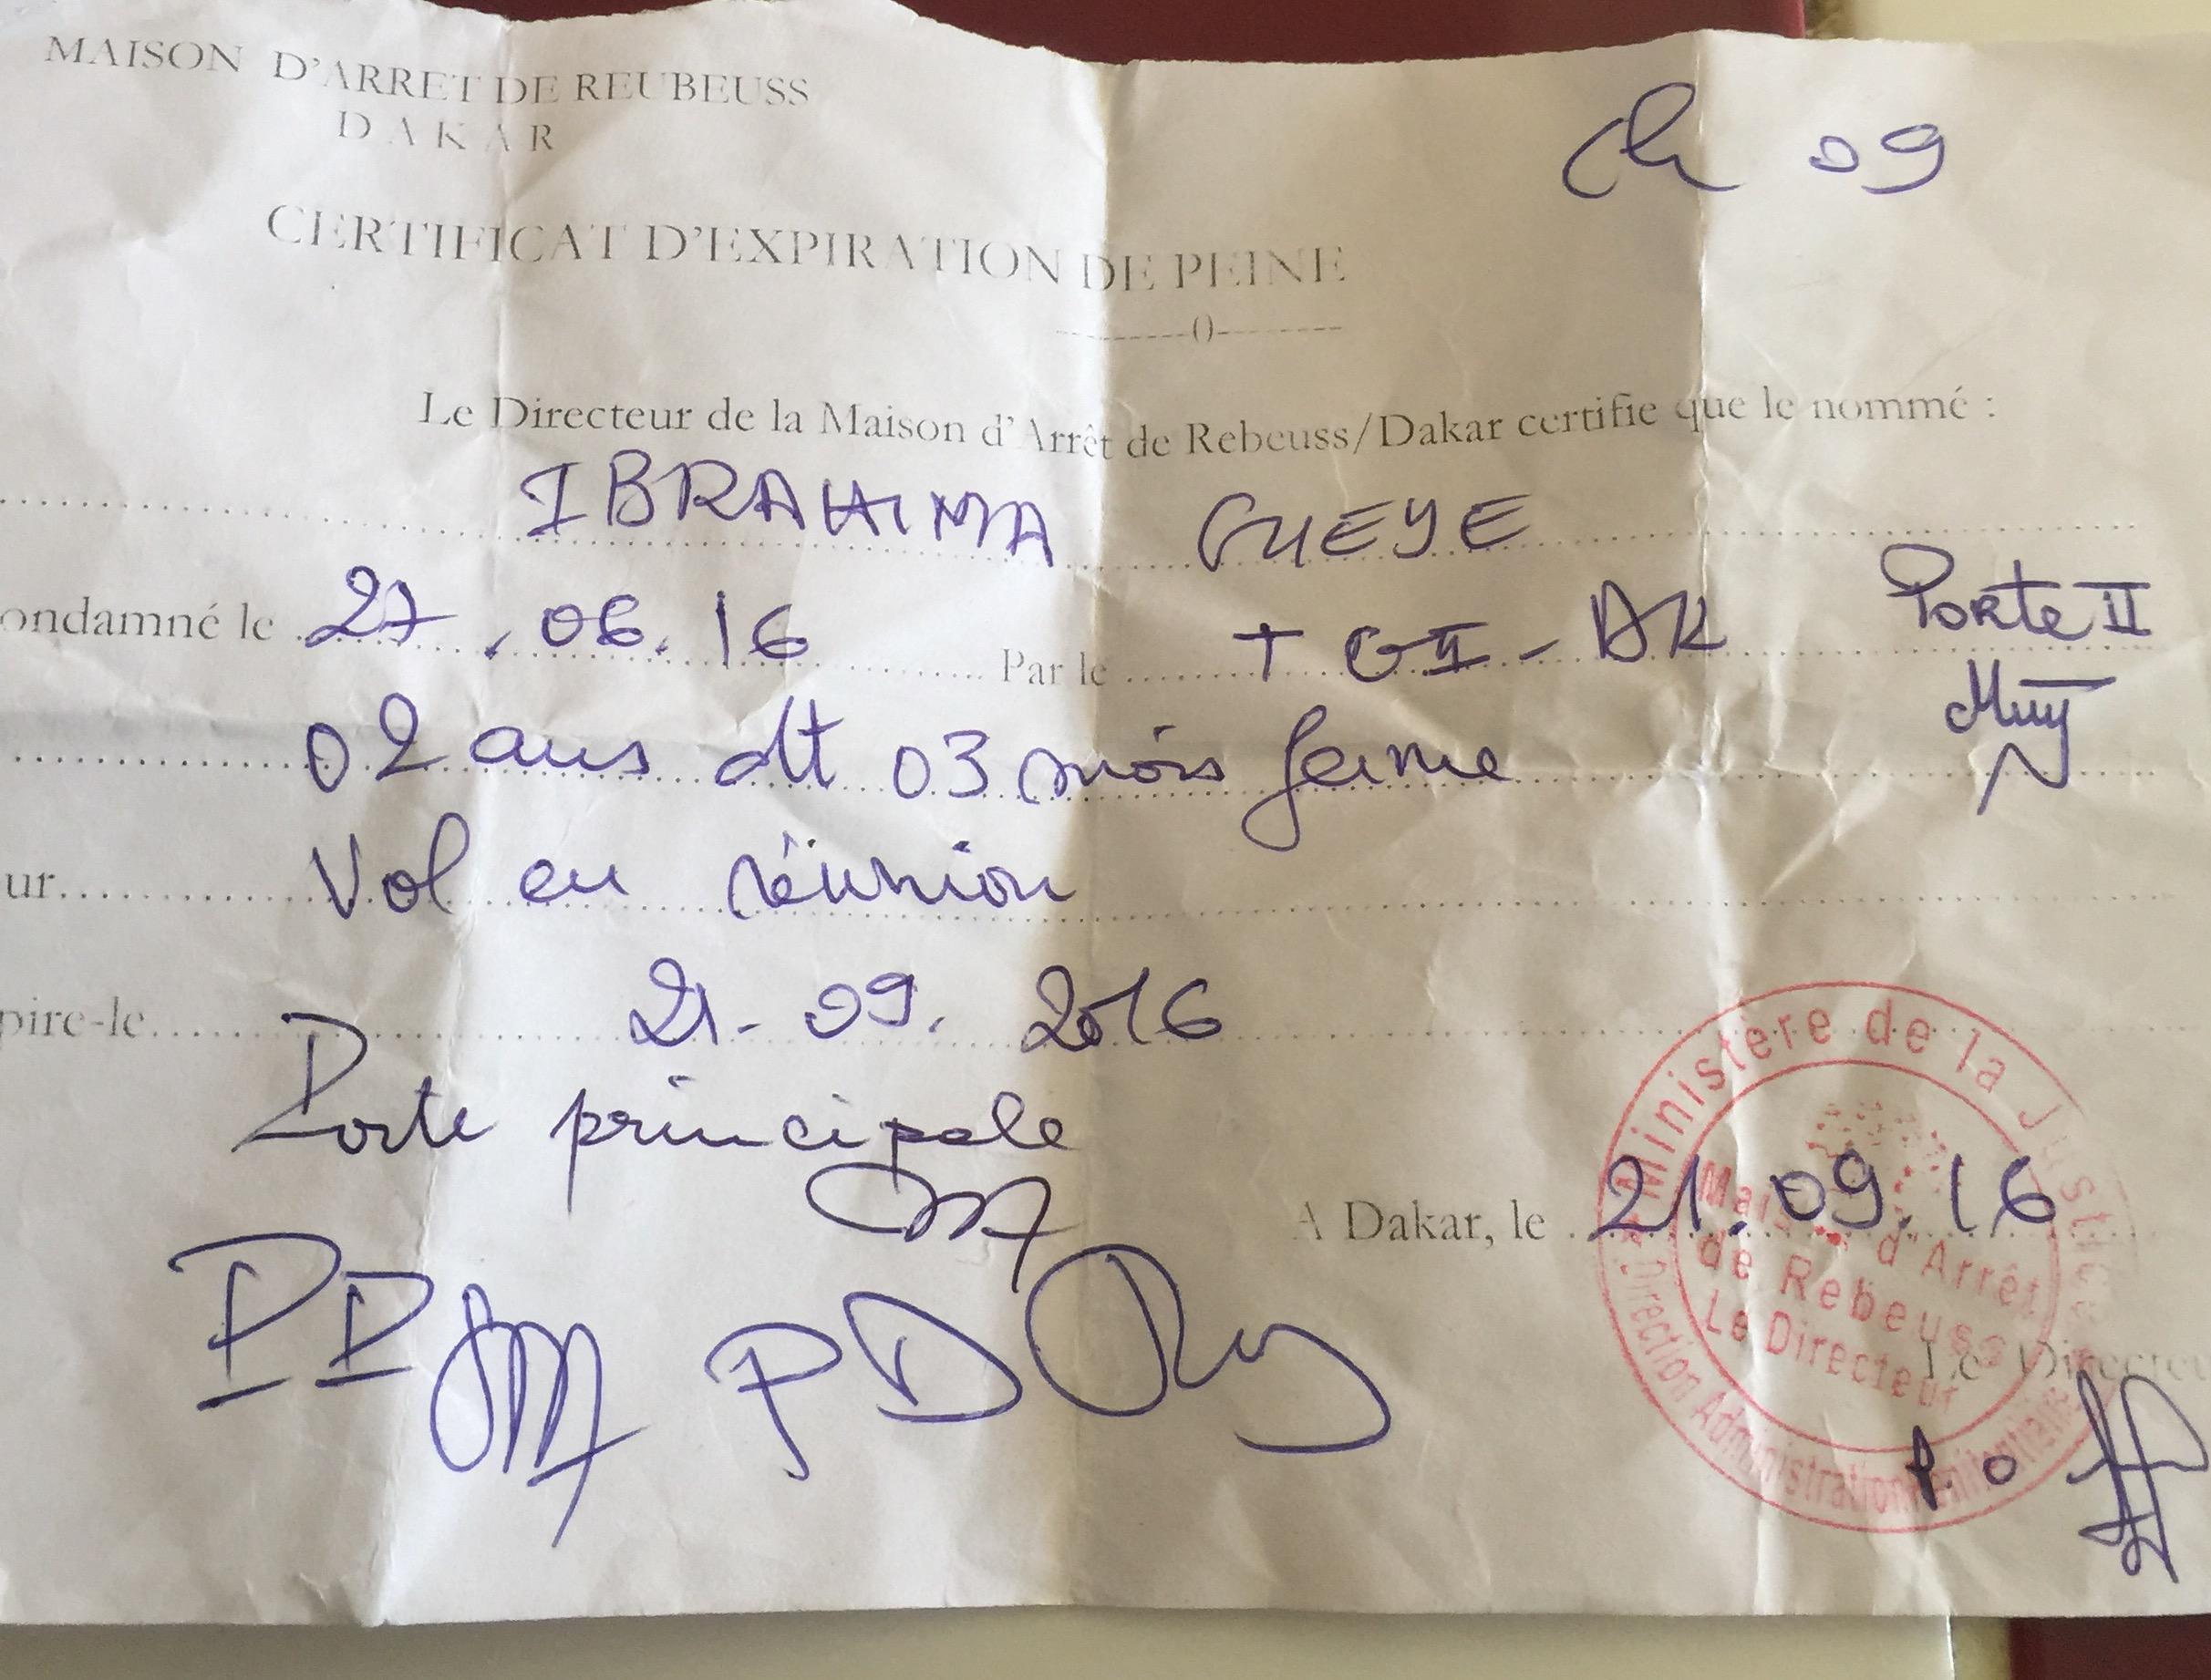 MAISON D'ARRET DE REUBEUSS
DAKAR
Ch 09
CERTIFICAT D'EXPIRATION DE PEINE
---------0---------
Le Directeur de la Maison d'Arrêt de Rebeuss/Dakar certifie que le nommé :
IBRAHIMA GUEYE
ondamné le 27.06.16 Par le TGI-DK
Porte II
02 ans dt 03 mois ferme
ur Vol en réunion
pire-le 21-09.2016
Porte principale
A Dakar, le 21.09.16
PI
PD
Ministère de la Justice
Maison d'Arrêt
de Rebeuss
Le Directeur
Direction Administration Pénitentiaire
Le Directeu
P.O